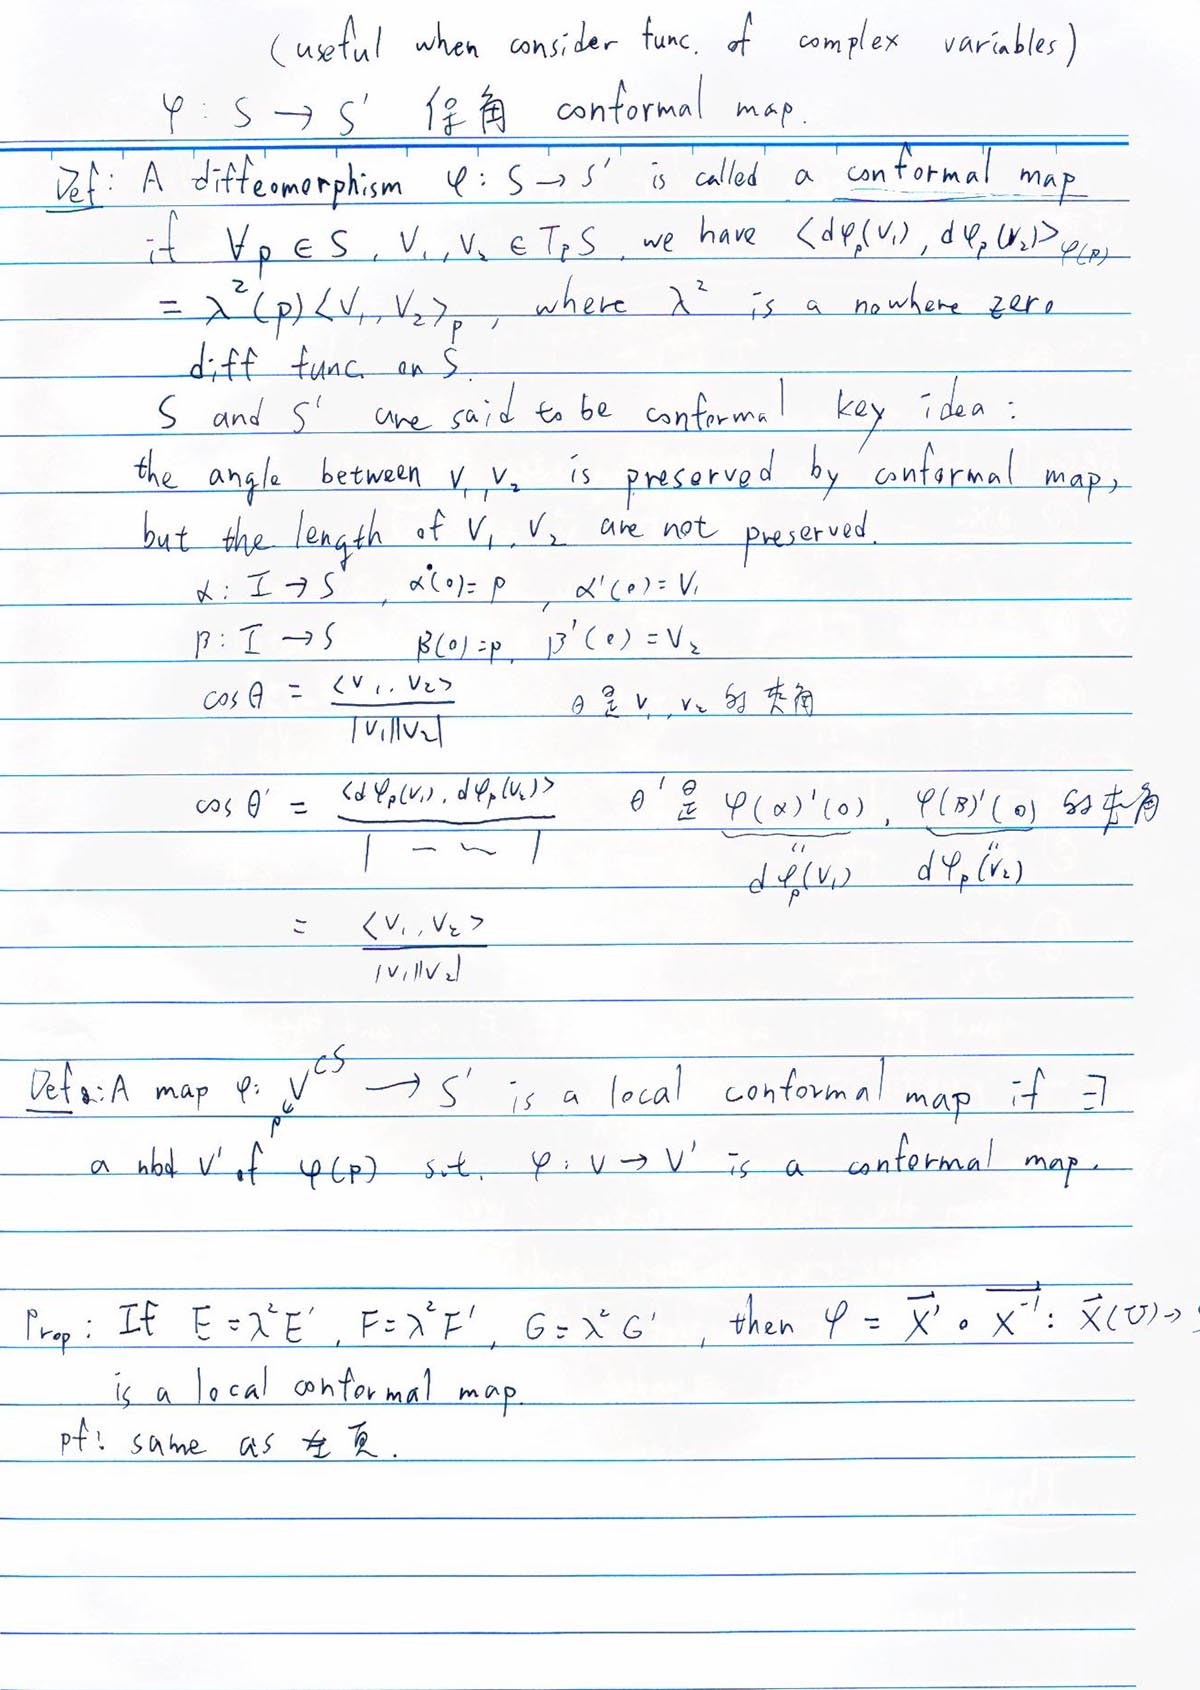 (useful when consider func. of complex variables)
φ : S → S' 保角 conformal map.
Def: A diffeomorphism φ : S → S' is called a conformal map
if ∀p ∈ S, V₁, V₂ ∈ TₚS, we have <dφₚ(V₁), dφₚ(V₂)>φ(p)
= λ²(p)<V₁, V₂>ₚ, where λ² is a nowhere zero
diff func. on S.
S and S' are said to be conformal key idea :
the angle between V₁, V₂ is preserved by conformal map,
but the length of V₁, V₂ are not preserved.
α : I → S , α(0)= p , α'(0)= V₁
β : I → S β(0)=p, β'(0)=V₂
cos θ = <V₁, V₂> / |V₁||V₂| θ 是 V₁, V₂ 的 夾角
cos θ' = <dφₚ(V₁), dφₚ(V₂)> / | ~ ~ | θ' 是 φ(α)'(0), φ(β)'(0) 的 夾角
" "
dφₚ(V₁) dφₚ(V₂)
= <V₁, V₂> / |V₁||V₂|
Def 2: A map φ: V ⊂S → S' is a local conformal map if ∃
p
a nbd V' of φ(p) s.t. φ : V → V' is a conformal map.
Prop : If E = λ²E', F = λ²F', G = λ²G' , then φ = X⃗' ∘ X⃗⁻¹ : X⃗(U) →
is a local conformal map.
pf: same as 左頁.